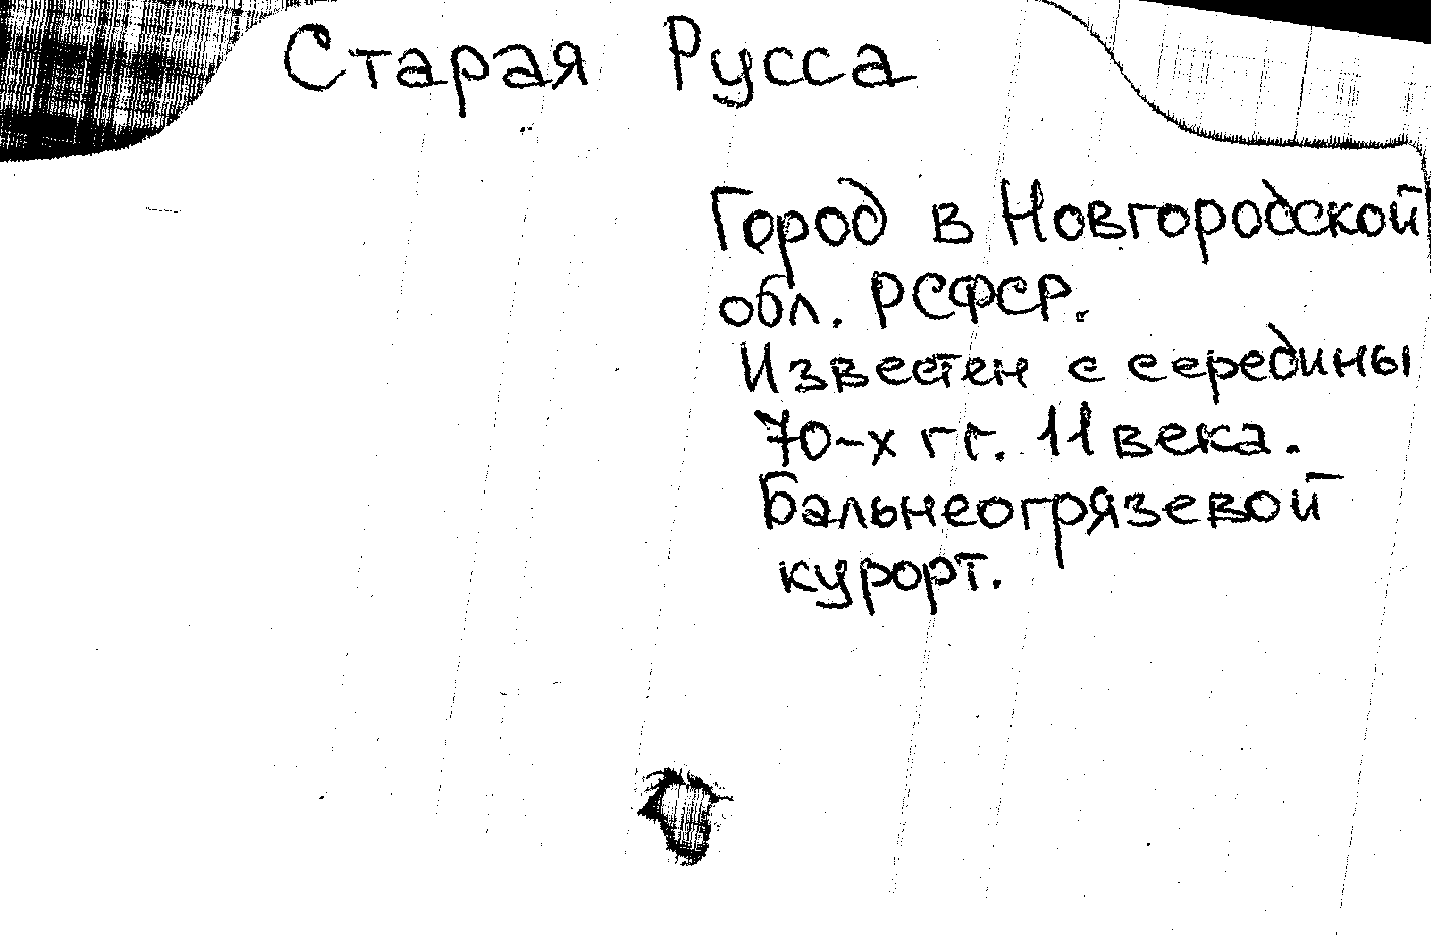 Старая Русса
Город в Новгородской
обл. РСФСР.
Известен с середины
70-х гг. 11 века.
Бальнеогрязевой
курорт.